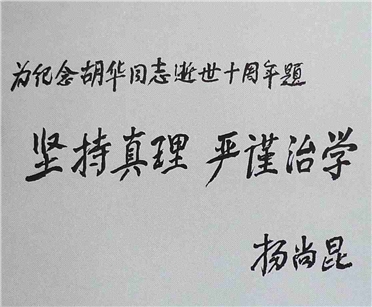 为纪念胡华同志逝世十周年题
坚持真理 严谨治学
杨尚昆